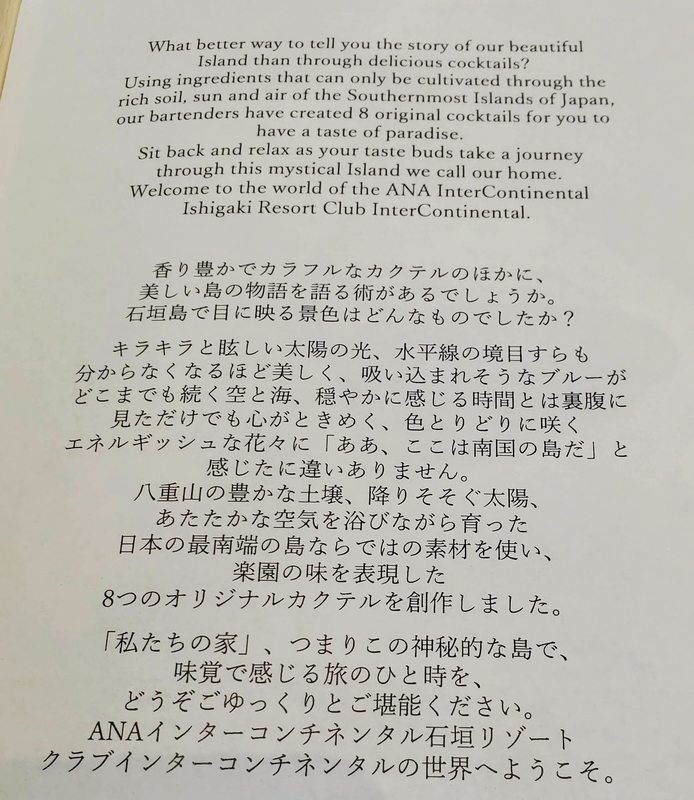 What better way to tell you the story of our beautiful
Island than through delicious cocktails?
Using ingredients that can only be cultivated through the
rich soil, sun and air of the Southernmost Islands of Japan,
our bartenders have created 8 original cocktails for you to
have a taste of paradise.
Sit back and relax as your taste buds take a journey
through this mystical Island we call our home.
Welcome to the world of the ANA InterContinental
Ishigaki Resort Club InterContinental.
香り豊かでカラフルなカクテルのほかに、
美しい島の物語を語る術があるでしょうか。
石垣島で目に映る景色はどんなものでしたか？
キラキラと眩しい太陽の光、水平線の境目すらも
分からなくなるほど美しく、吸い込まれそうなブルーが
どこまでも続く空と海、穏やかに感じる時間とは裏腹に
見ただけでも心がときめく、色とりどりに咲く
エネルギッシュな花々に「ああ、ここは南国の島だ」と
感じたに違いありません。
八重山の豊かな土壌、降りそそぐ太陽、
あたたかな空気を浴びながら育った
日本の最南端の島ならではの素材を使い、
楽園の味を表現した
8つのオリジナルカクテルを創作しました。
「私たちの家」、つまりこの神秘的な島で、
味覚で感じる旅のひと時を、
どうぞごゆっくりとご堪能ください。
ANAインターコンチネンタル石垣リゾート
クラブインターコンチネンタルの世界へようこそ。